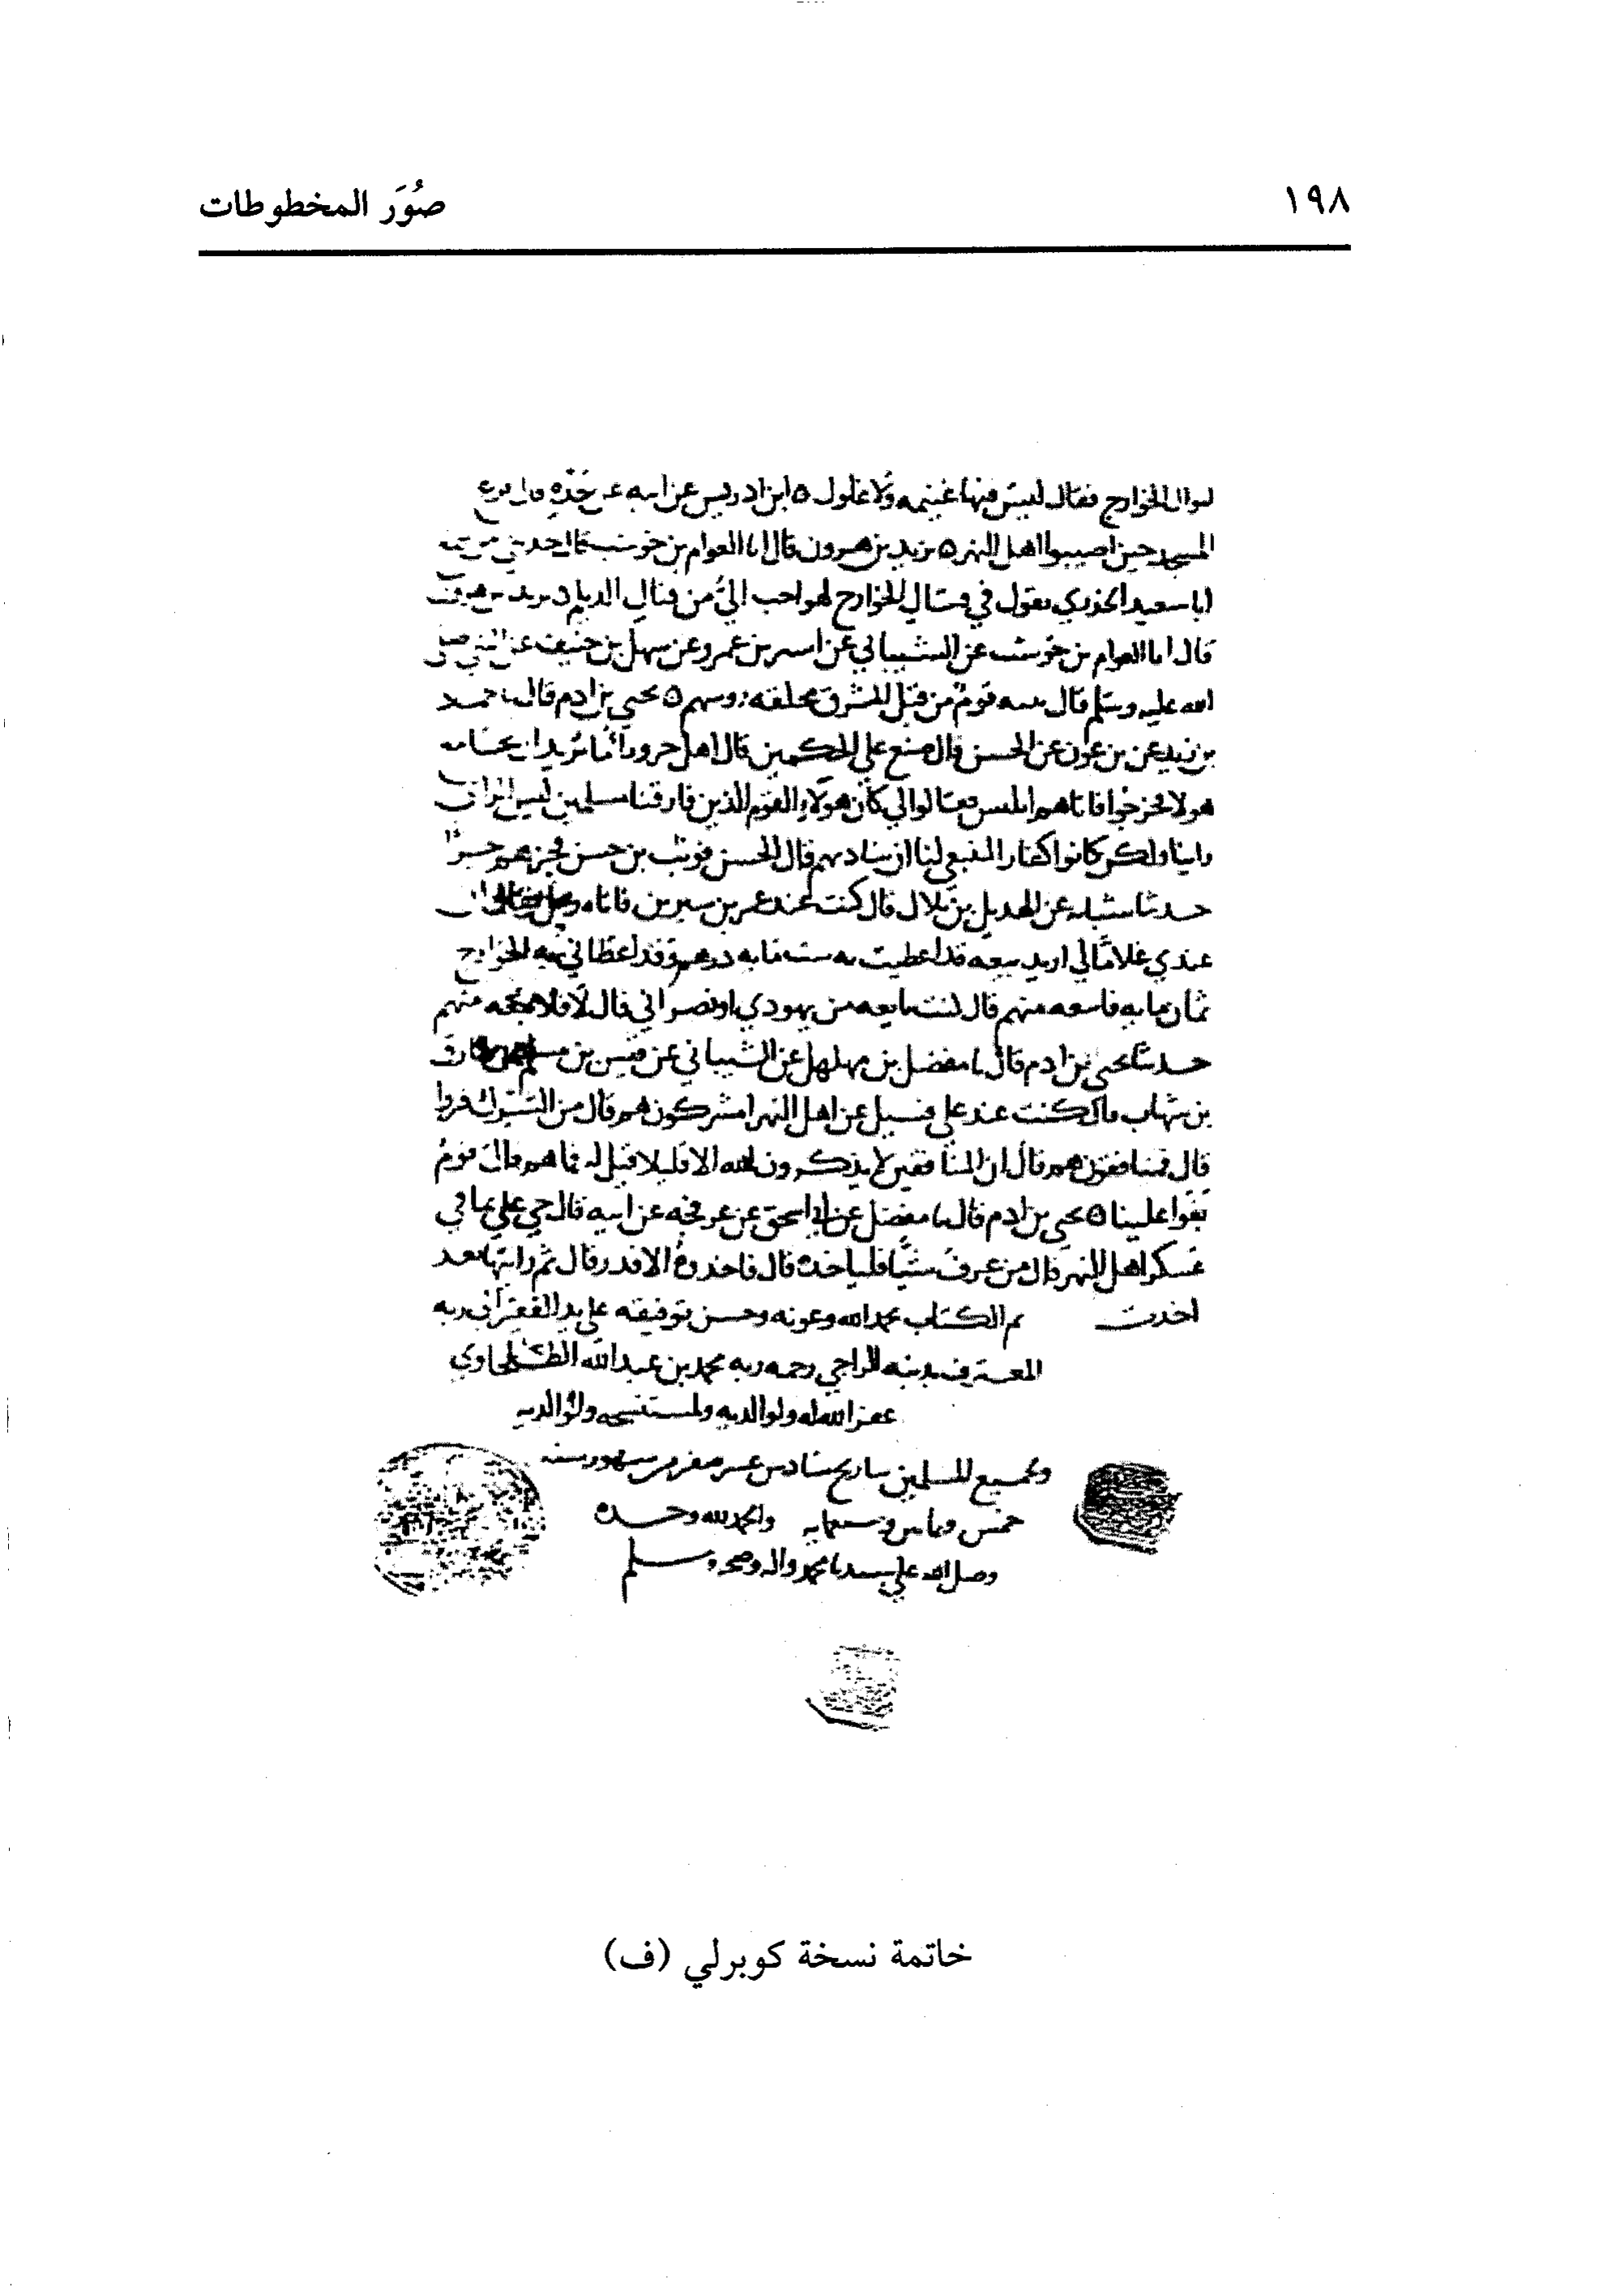 ١٩٨
صُوَر المخطوطات
اموال الخوارج فقال ليس فيها غنيمه ولا غلول ٥ ابن ادريس عن ابيه عن جده قال فزع
المسجد حين اصيبوا اهل النهر ٥ يزيد بن هرون قال انا العوام بن حوشب قال حدثني من سمع
ابا سعيد الخدري يقول في قتال الخوارج لهو احب اليّ من قتال الديلم ٥ يزيد بن هرون
قال انا العوام بن حوشب عن الشيباني عن اسير بن عمرو عن سهل بن حنيف عن النبي صلى
الله عليه وسلم قال يتيه قوم من قبل المشرق محلقه روسهم ٥ يحيى بن ادم قال نا حماد
بن زيد عن بن عون عن الحسن قال لما صنع علي الحكمين قال اهل حرورا ما تريد ان
هولا فخرجوا فاتاهم ابليس فقالوا لي كان هولاء القوم الذين فارقنا مسلمين ليس الراي
راينا ولكن كانوا كفارا لينبغي لنا ان قال الحسن فوثب بن حسن
حدثنا شبابه عن الهديل بن بلال قال كنت عند محمد بن سيرين فاتاه رجل فقال ان
عندي غلاما لي اريد بيعه قد اعطيت به ست مايه درهم وقد اعطاني به الخوارج
ثمان مايه فابيعه منهم قال كنت بايعه من يهودي او نصراني قال لا قال فلا تبعه منهم
حدثنا يحيى بن ادم قال نا مفضل بن مهلهل عن الشيباني عن قيس بن مسلم عن طارق
بن شهاب قال كنت عند علي فسيل عن اهل النهر امشركون هم قال من الشرك فروا
قال فمنافقون هم قال ان المنافقين لا يذكرون الله الا قليلا قيل له فما هم قال قوم
بغوا علينا ٥ يحيى بن ادم قال نا مفضل عن ابي اسحق عن عرفجه عن ابيه قال جي علي بما في
عسكر اهل النهر قال من عرف شيا فلياخذه قال فاخذوه الا قدر قال ثم رايتها بعد
اخذت تم الكتاب بحمد الله وعونه وحسن توفيقه على يد الفقير الى ربه
المعترف بذنبه الراجي رحمه ربه محمد بن عبد الله
غفر الله له ولوالديه ولمستنسخه ولوالديه
ولجميع المسلمين بتاريخ سادس عشر صفر من شهور سنه
خمس وثمانين وسبعمايه والحمد لله وحده
وصلى الله على سيدنا محمد واله وصحبه وسلم
خاتمة نسخة كوبرلي (ف)